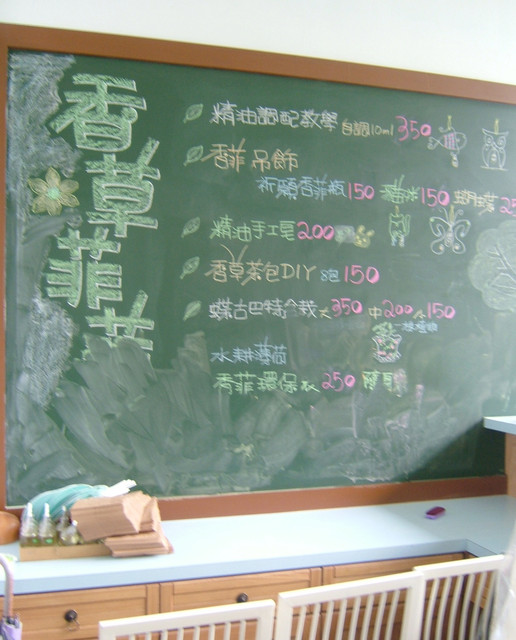 香草菲菲
精油調配教學 自調10ml 350
香菲吊飾
祈願香菲瓶150 貓咪150 蝴蝶25
精油手工皂200
香草茶包DIY 5包 150
蝶古巴特盆栽 大350 中200 小150
水耕
香菲環保衣250